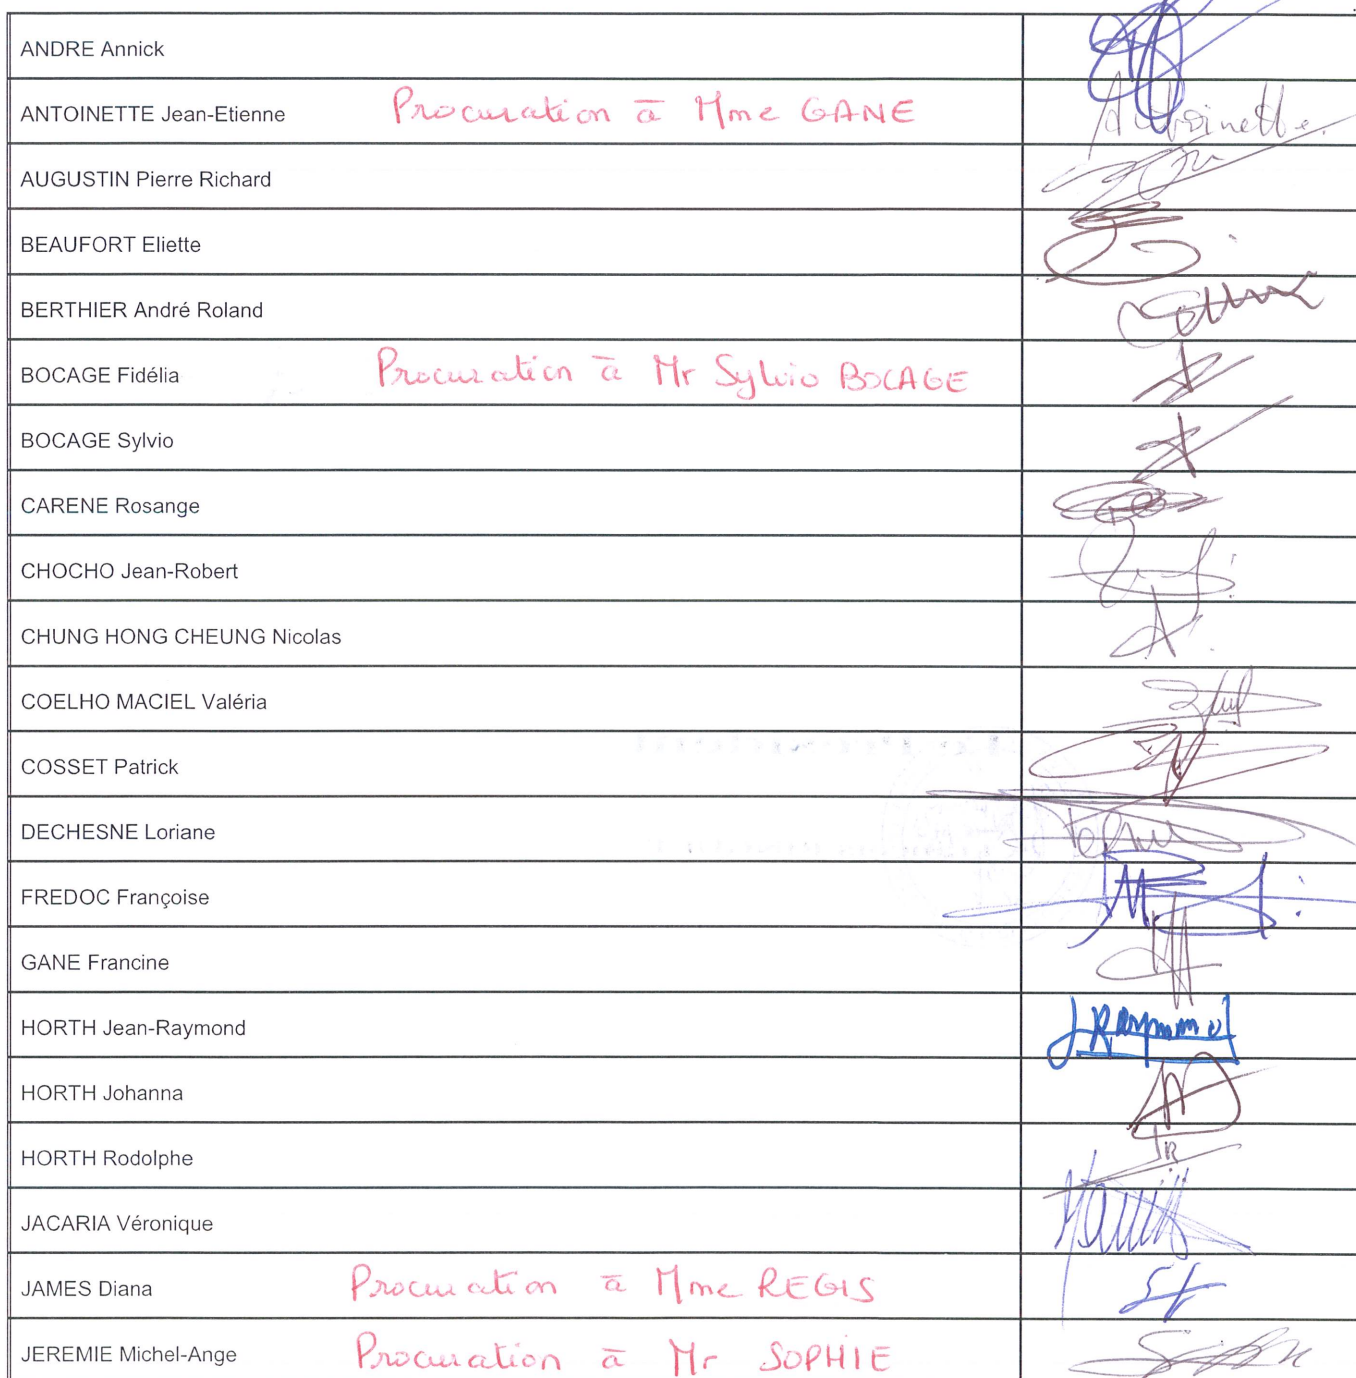 ANDRE Annick
ANTOINETTE Jean-Etienne Procuration à Mme GANE Antoinette
AUGUSTIN Pierre Richard
BEAUFORT Eliette
BERTHIER André Roland
BOCAGE Fidélia Procuration à Mr Sylvio BOCAGE
BOCAGE Sylvio
CARENE Rosange
CHOCHO Jean-Robert
CHUNG HONG CHEUNG Nicolas
COELHO MACIEL Valéria
COSSET Patrick
DECHESNE Loriane
FREDOC Françoise
GANE Francine
HORTH Jean-Raymond JRaymond
HORTH Johanna
HORTH Rodolphe
JACARIA Véronique
JAMES Diana Procuration à Mme REGIS
JEREMIE Michel-Ange Procuration à Mr SOPHIE